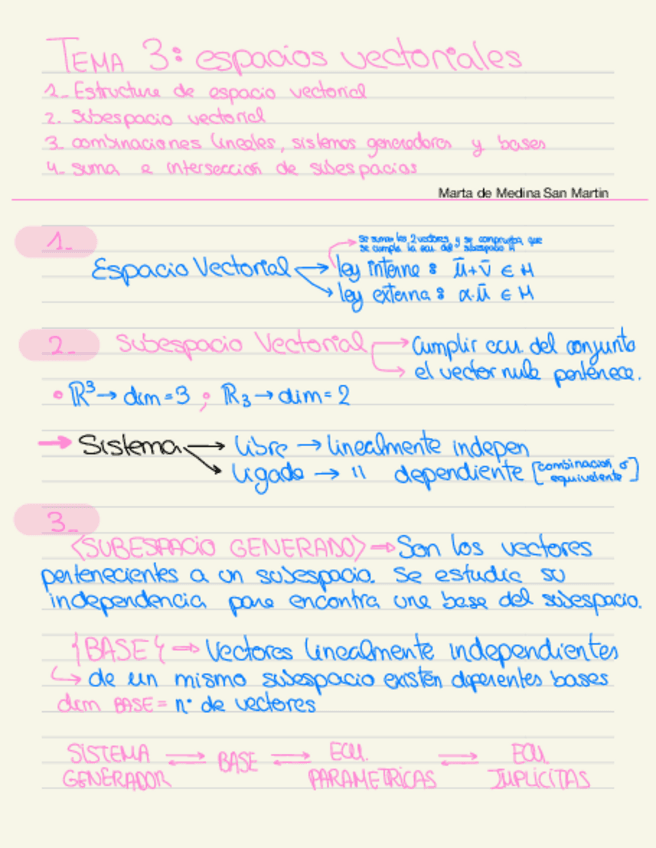 TEMA 3: espacios vectoriales
1_ Estructura de espacio vectorial
2. Subespacio vectorial
3_ combinaciones lineales, sistemas generadores y bases
4_ suma e intersección de subespacios
Marta de Medina San Martin
1_
se suman los 2 vectores y se comprueba que
se cumpla la ecu. del subespacio H
Espacio Vectorial → ley interna : ū+v̄ ∈ H
→ ley externa : α·ū ∈ H
2_ Subespacio Vectorial → Cumplir ecu. del conjunto
→ el vector nulo pertenece.
• ℝ³ → dim = 3 ; ℝ₃ → dim = 2
→ Sistema → Libre → linealmente indepen
→ Ligado → " dependiente [combinación o
equivalente]
3_
<SUBESPACIO GENERADO> ⇒ Son los vectores
pertenecientes a un subespacio. Se estudia su
independencia para encontra una base del subespacio.
{BASE} ⇒ Vectores linealmente independientes
↳ de un mismo subespacio existen diferentes bases
dim BASE = nº de vectores
SISTEMA GENERADOR ⇌ BASE ⇌ ECU. PARAMETRICAS ⇌ ECU IMPLÍCITAS